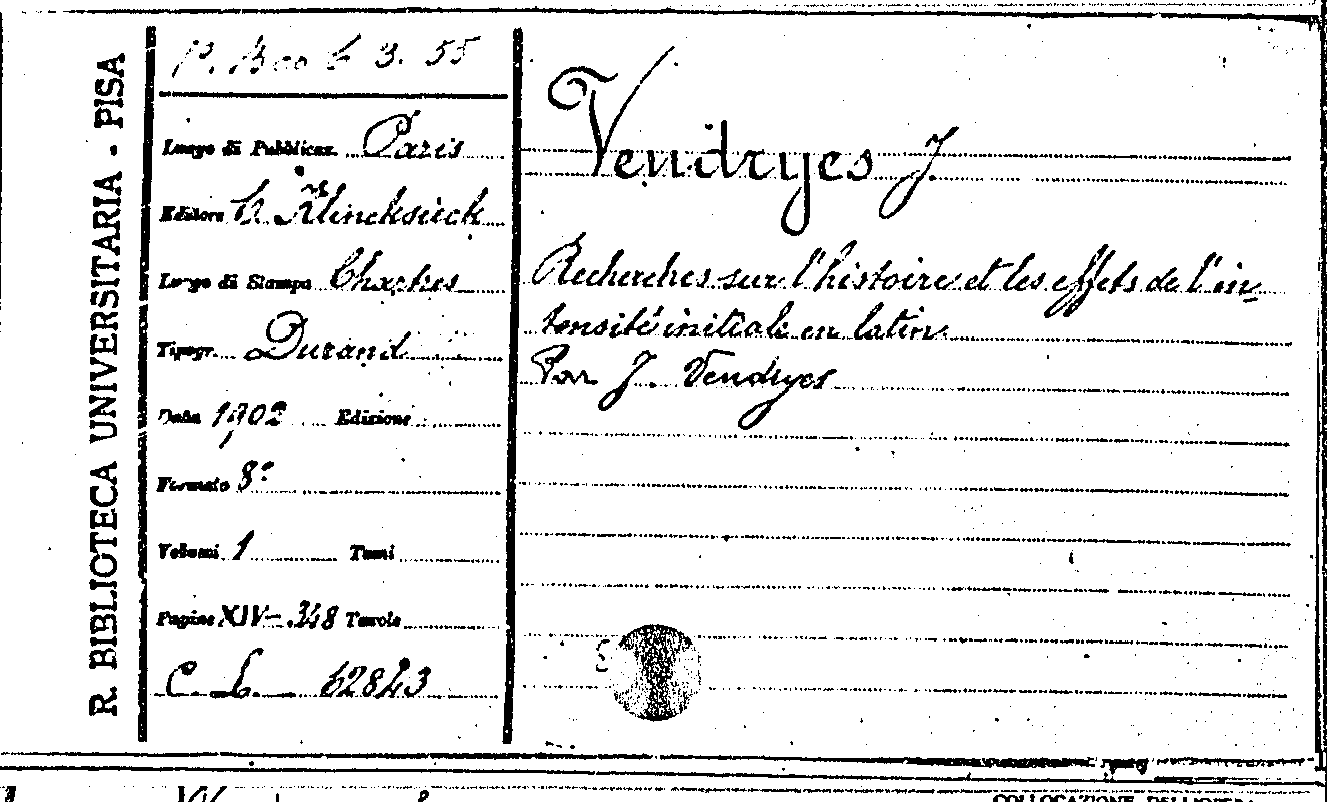 R. BIBLIOTECA UNIVERSITARIA - PISA
P. Boo b 3. 55
Luogo di Pubblicaz. Paris
Editore C. Klincksieck
Luogo di Stampa Chartres
Tipogr. Durand
Data 1902 Edizione
Formato 8°
Volumi 1 Tomi
Pagine XIV-348 Tavole
C. L. 62843
Vendryes J.
Recherches sur l'histoire et les effets de l'in-
tensité initiale en latin
Par J. Vendryes